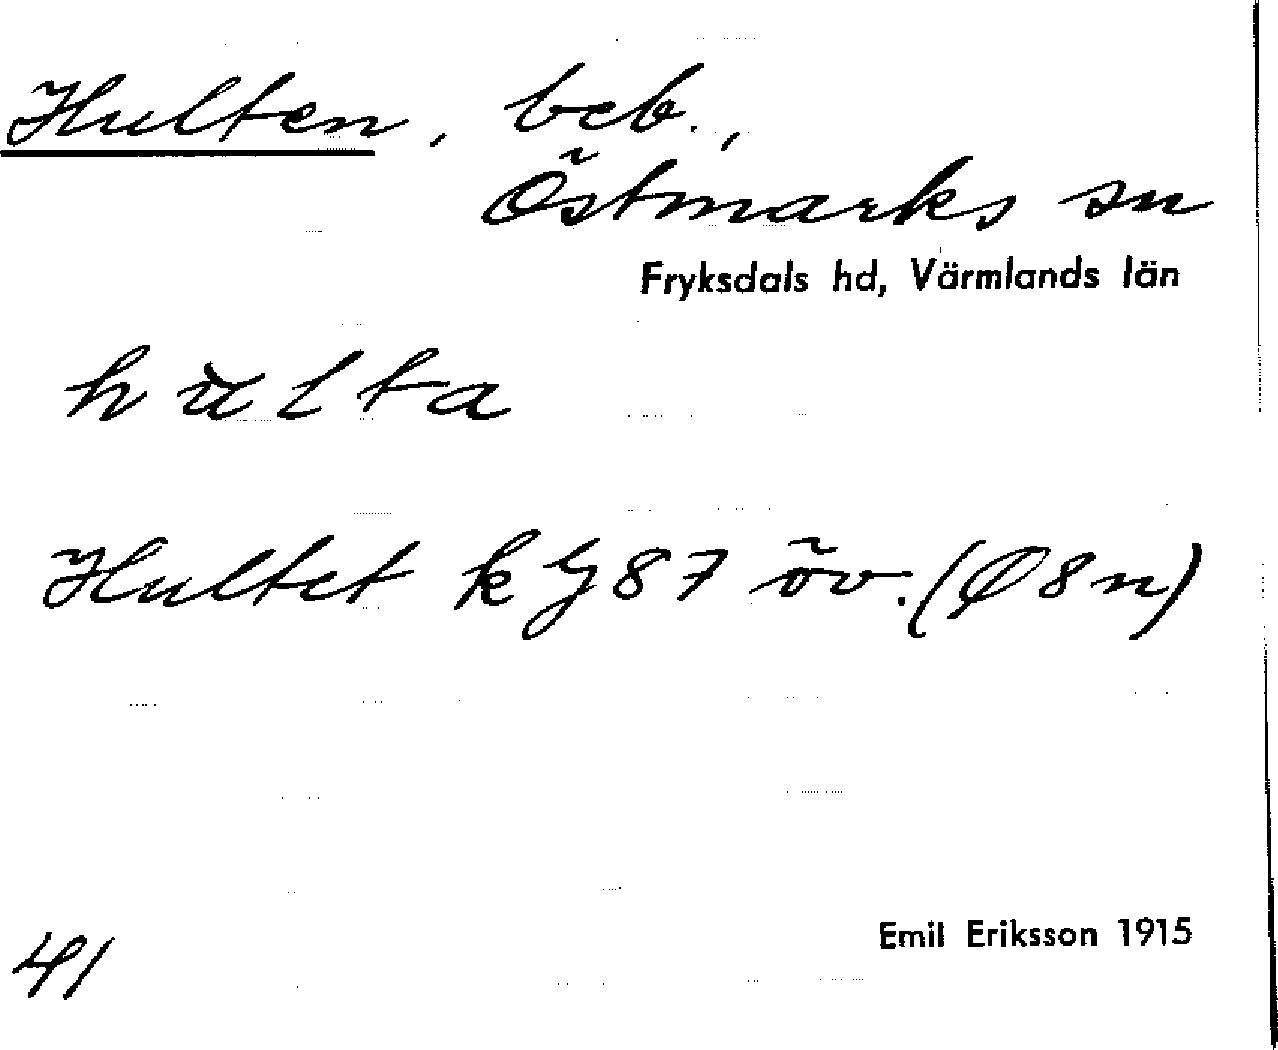 Hulten, beb.,
Östmarks sn
Fryksdals hd, Värmlands län
hulta
Hultet k G 87 öv. (Ø 8 n)
Emil Eriksson 1915
41